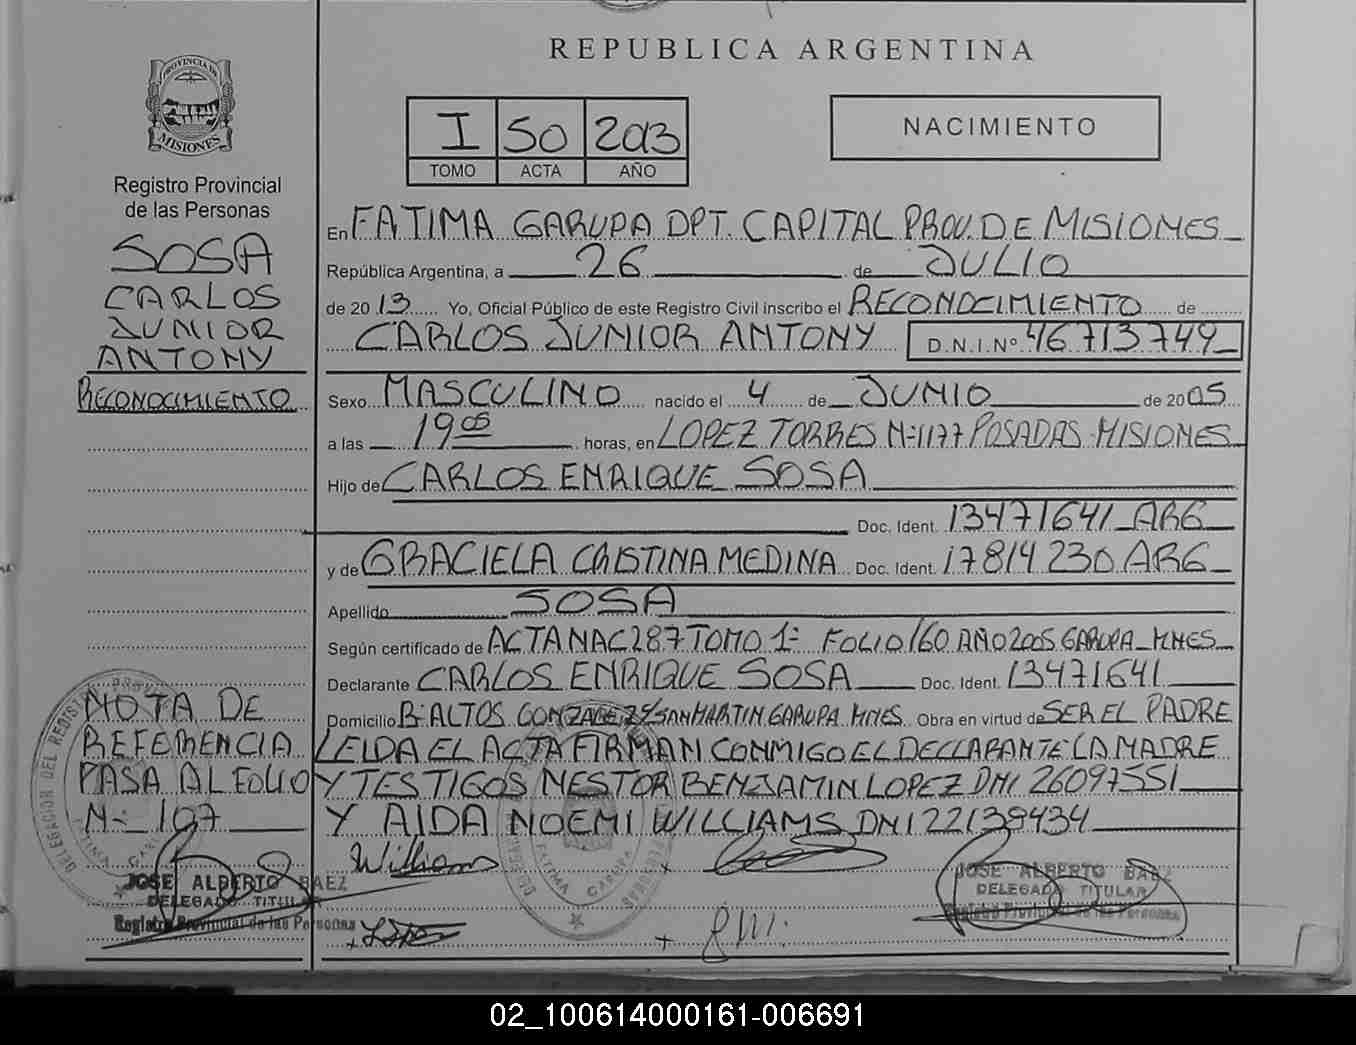 REPUBLICA ARGENTINA
PROVINCIA DE
MISIONES
I 50 2013
TOMO ACTA AÑO
NACIMIENTO
Registro Provincial
de las Personas
SOSA
CARLOS
JUNIOR
ANTONY
RECONOCIMIENTO
En FATIMA GARUPA DPT. CAPITAL PROV. DE MISIONES
República Argentina, a 26 de JULIO
de 20 13 Yo, Oficial Público de este Registro Civil inscribo el RECONOCIMIENTO de
CARLOS JUNIOR ANTONY D.N.I.Nº 46713749
Sexo MASCULINO nacido el 4 de JUNIO de 2005
a las 19 05 horas, en LOPEZ TORRES Nº 1177 POSADAS MISIONES
Hijo de CARLOS ENRIQUE SOSA
Doc. Ident. 13471641 ARG
y de GRACIELA CRISTINA MEDINA Doc. Ident. 17814230 ARG
Apellido SOSA
Según certificado de ACTA NAC 287 TOMO 1º FOLIO 160 AÑO 2005 GARUPA MNES
Declarante CARLOS ENRIQUE SOSA Doc. Ident. 13471641
Domicilio Bº ALTOS GONZALEZ Y SAN MARTIN GARUPA MNES. Obra en virtud de SER EL PADRE
LEIDA EL ACTA FIRMAN CONMIGO EL DECLARANTE LA MADRE
Y TESTIGOS NESTOR BENJAMIN LOPEZ DNI 26097551
Y AIDA NOEMI WILLIAMS DNI 22138434
NOTA DE
REFERENCIA
PASA AL FOLIO
Nº 107
Williams
JOSE ALBERTO BAEZ
DELEGADO TITULAR
Registro Provincial de las Personas
JOSE ALBERTO BAEZ
DELEGADO TITULAR
Registro Provincial de las Personas
Lopez
02_100614000161-006691